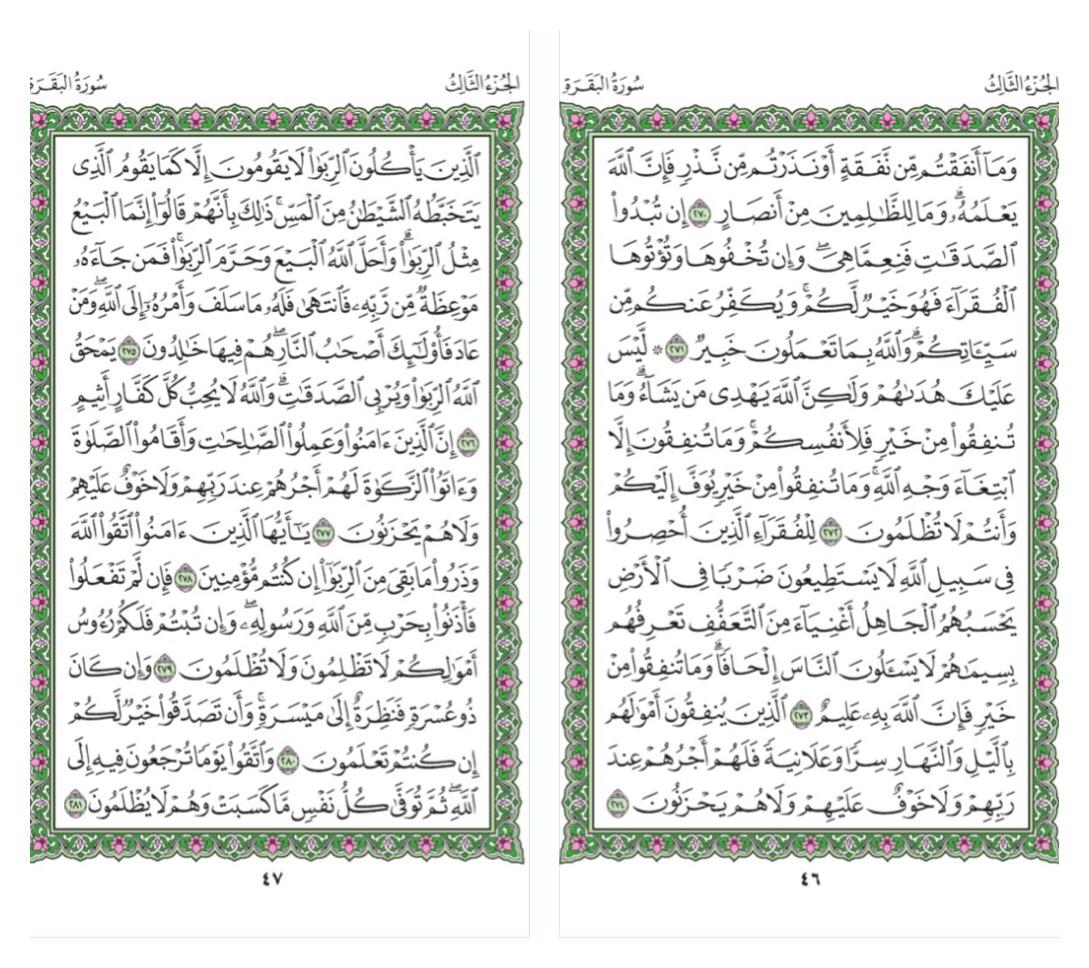 الجُزْءُ الثَّالِثُ
سُورَةُ البَقَرَةِ
وَمَآ أَنفَقْتُم مِّن نَّفَقَةٍ أَوْ نَذَرْتُم مِّن نَّذْرٍ فَإِنَّ ٱللَّهَ
يَعْلَمُهُۥۗ وَمَا لِلظَّـٰلِمِينَ مِنْ أَنصَارٍ ٢٧٠ إِن تُبْدُوا۟
ٱلصَّدَقَـٰتِ فَنِعِمَّا هِىَۖ وَإِن تُخْفُوهَا وَتُؤْتُوهَا
ٱلْفُقَرَآءَ فَهُوَ خَيْرٌ لَّكُمْۚ وَيُكَفِّرُ عَنكُم مِّن
سَيِّـَٔاتِكُمْۗ وَٱللَّهُ بِمَا تَعْمَلُونَ خَبِيرٌ ٢٧١ * لَّيْسَ
عَلَيْكَ هُدَىٰهُمْ وَلَـٰكِنَّ ٱللَّهَ يَهْدِى مَن يَشَآءُۗ وَمَا
تُنفِقُوا۟ مِنْ خَيْرٍ فَلِأَنفُسِكُمْۚ وَمَا تُنفِقُونَ إِلَّا
ٱبْتِغَآءَ وَجْهِ ٱللَّهِۚ وَمَا تُنفِقُوا۟ مِنْ خَيْرٍ يُوَفَّ إِلَيْكُمْ
وَأَنتُمْ لَا تُظْلَمُونَ ٢٧٢ لِلْفُقَرَآءِ ٱلَّذِينَ أُحْصِرُوا۟
فِى سَبِيلِ ٱللَّهِ لَا يَسْتَطِيعُونَ ضَرْبًا فِى ٱلْأَرْضِ
يَحْسَبُهُمُ ٱلْجَاهِلُ أَغْنِيَآءَ مِنَ ٱلتَّعَفُّفِ تَعْرِفُهُم
بِسِيمَـٰهُمْ لَا يَسْـَٔلُونَ ٱلنَّاسَ إِلْحَافًاۗ وَمَا تُنفِقُوا۟ مِنْ
خَيْرٍ فَإِنَّ ٱللَّهَ بِهِۦ عَلِيمٌ ٢٧٣ ٱلَّذِينَ يُنفِقُونَ أَمْوَٰلَهُم
بِٱلَّيْلِ وَٱلنَّهَارِ سِرًّا وَعَلَانِيَةً فَلَهُمْ أَجْرُهُمْ عِندَ
رَبِّهِمْ وَلَا خَوْفٌ عَلَيْهِمْ وَلَا هُمْ يَحْزَنُونَ ٢٧٤
٤٦
الجُزْءُ الثَّالِثُ
سُورَةُ البَقَرَةِ
ٱلَّذِينَ يَأْكُلُونَ ٱلرِّبَوٰا۟ لَا يَقُومُونَ إِلَّا كَمَا يَقُومُ ٱلَّذِى
يَتَخَبَّطُهُ ٱلشَّيْطَـٰنُ مِنَ ٱلْمَسِّۚ ذَٰلِكَ بِأَنَّهُمْ قَالُوٓا۟ إِنَّمَا ٱلْبَيْعُ
مِثْلُ ٱلرِّبَوٰا۟ۗ وَأَحَلَّ ٱللَّهُ ٱلْبَيْعَ وَحَرَّمَ ٱلرِّبَوٰا۟ۚ فَمَن جَآءَهُۥ
مَوْعِظَةٌ مِّن رَّبِّهِۦ فَٱنتَهَىٰ فَلَهُۥ مَا سَلَفَ وَأَمْرُهُۥٓ إِلَى ٱللَّهِۖ وَمَنْ
عَادَ فَأُو۟لَـٰٓئِكَ أَصْحَـٰبُ ٱلنَّارِۖ هُمْ فِيهَا خَـٰلِدُونَ ٢٧٥ يَمْحَقُ
ٱللَّهُ ٱلرِّبَوٰا۟ وَيُرْبِى ٱلصَّدَقَـٰتِۗ وَٱللَّهُ لَا يُحِبُّ كُلَّ كَفَّارٍ أَثِيمٍ
٢٧٦ إِنَّ ٱلَّذِينَ ءَامَنُوا۟ وَعَمِلُوا۟ ٱلصَّـٰلِحَـٰتِ وَأَقَامُوا۟ ٱلصَّلَوٰةَ
وَءَاتَوُا۟ ٱلزَّكَوٰةَ لَهُمْ أَجْرُهُمْ عِندَ رَبِّهِمْ وَلَا خَوْفٌ عَلَيْهِمْ
وَلَا هُمْ يَحْزَنُونَ ٢٧٧ يَـٰٓأَيُّهَا ٱلَّذِينَ ءَامَنُوا۟ ٱتَّقُوا۟ ٱللَّهَ
وَذَرُوا۟ مَا بَقِىَ مِنَ ٱلرِّبَوٰٓا۟ إِن كُنتُم مُّؤْمِنِينَ ٢٧٨ فَإِن لَّمْ تَفْعَلُوا۟
فَأْذَنُوا۟ بِحَرْبٍ مِّنَ ٱللَّهِ وَرَسُولِهِۦۖ وَإِن تُبْتُمْ فَلَكُمْ رُءُوسُ
أَمْوَٰلِكُمْ لَا تَظْلِمُونَ وَلَا تُظْلَمُونَ ٢٧٩ وَإِن كَانَ
ذُو عُسْرَةٍ فَنَظِرَةٌ إِلَىٰ مَيْسَرَةٍۚ وَأَن تَصَدَّقُوا۟ خَيْرٌ لَّكُمْ
إِن كُنتُمْ تَعْلَمُونَ ٢٨٠ وَٱتَّقُوا۟ يَوْمًا تُرْجَعُونَ فِيهِ إِلَى
ٱللَّهِۖ ثُمَّ تُوَفَّىٰ كُلُّ نَفْسٍ مَّا كَسَبَتْ وَهُمْ لَا يُظْلَمُونَ ٢٨١
٤٧